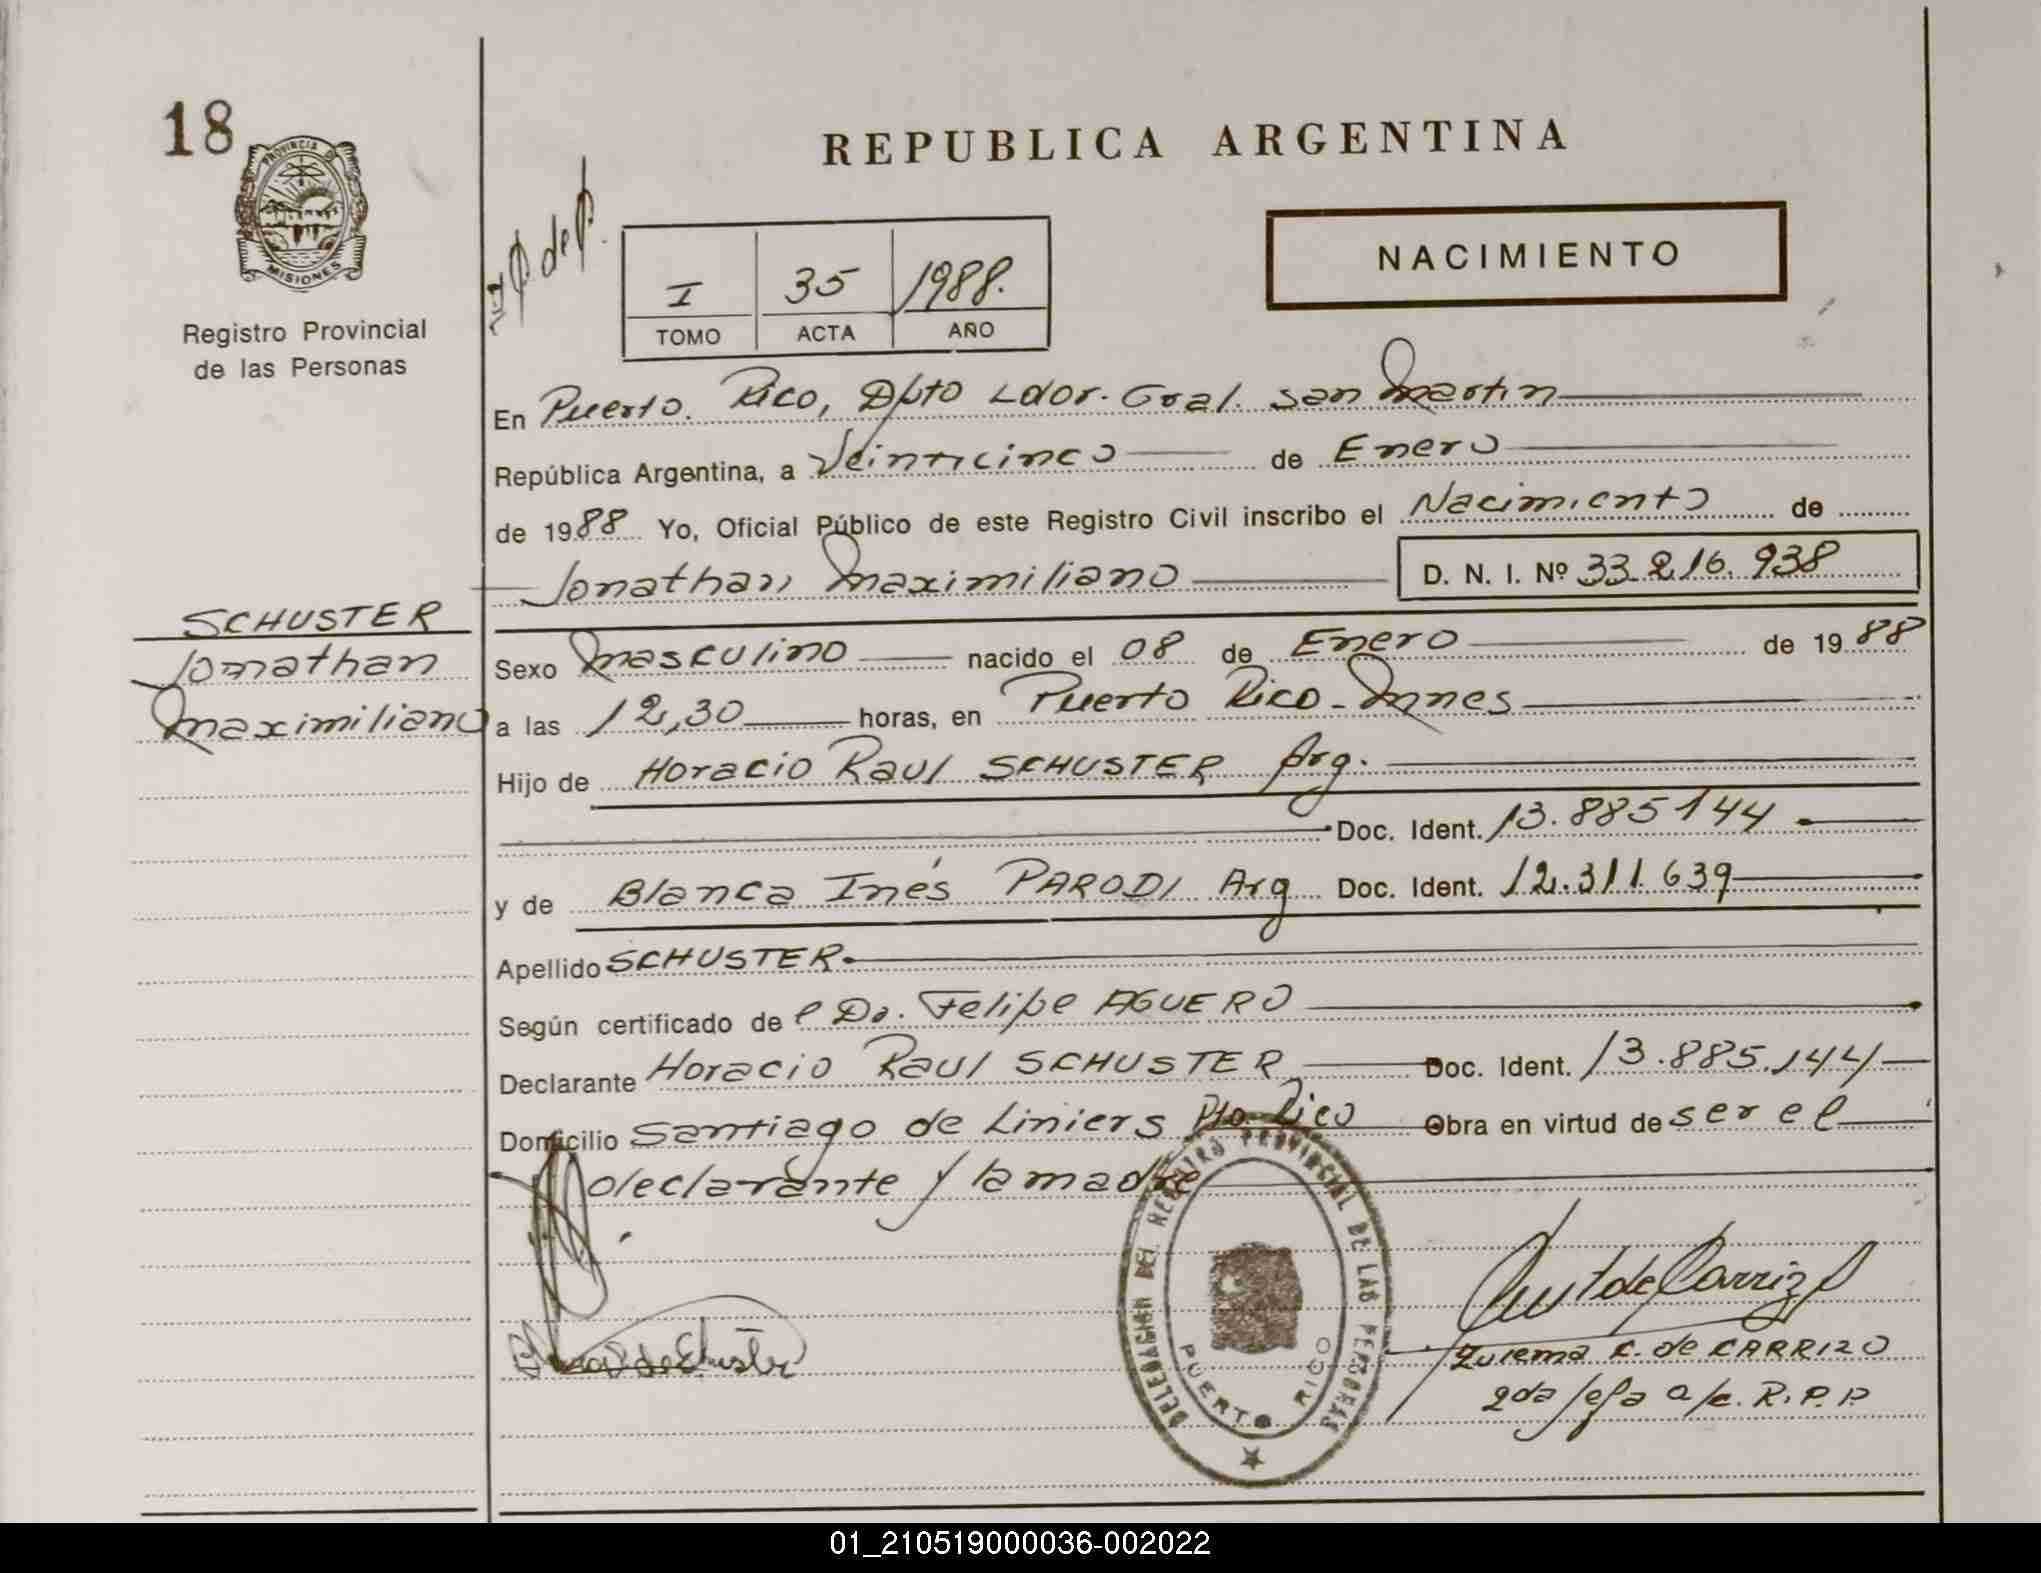 18
PROVINCIA DE
MISIONES
Registro Provincial
de las Personas
REPUBLICA ARGENTINA
NACIMIENTO
I 35 1988.
TOMO ACTA AÑO
En Puerto. Rico, Dpto Ldor. Gral. San Martin
República Argentina, a Veinticinco de Enero
de 1988 Yo, Oficial Público de este Registro Civil inscribo el Nacimiento de
Jonathan Maximiliano D. N. I. Nº 33.216.938
SCHUSTER
Jonathan
Maximiliano
Sexo Masculino nacido el 08 de Enero de 1988
a las 12,30 horas, en Puerto Rico - Mnes
Hijo de Horacio Raul SCHUSTER Arg.
Doc. Ident. 13.885144
y de Blanca Inés PARODI Arg Doc. Ident. 12.311.639
Apellido SCHUSTER
Según certificado de l Dr. Felipe AGUERO
Declarante Horacio Raul SCHUSTER Doc. Ident. 13.885.144
Domicilio Santiago de Liniers Pto. Rico Obra en virtud de ser el
declarante y la madre
DELEGACION DEL REGISTRO PROVINCIAL DE LAS PERSONAS
PUERTO RICO
de Carrizo
Zulema C. de CARRIZO
2da Jefa a/c. R.P.P.
01_210519000036-002022